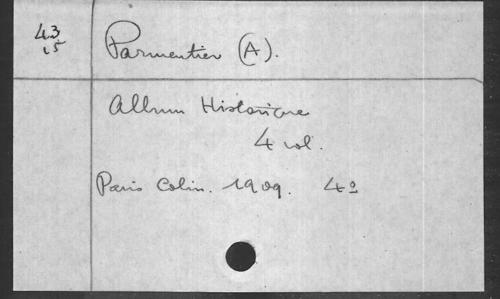 43
15
Parmentier (A).
Album Historique
4 vol.
Paris Colin. 1909. 4º